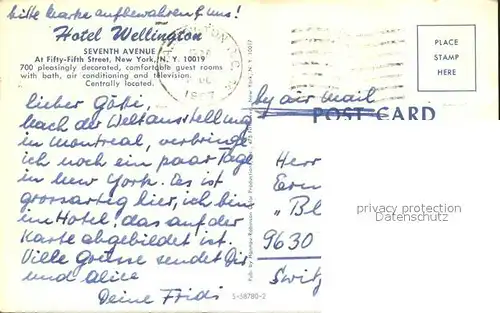 bitte Marke aufbewahren f. uns!
Hotel Wellington
SEVENTH AVENUE
At Fifty-Fifth Street, New York, N. Y. 10019
700 pleasingly decorated, comfortable guest rooms
with bath, air conditioning and television.
Centrally located.
PLACE
STAMP
HERE
1967
by air mail
POST CARD
lieber Götti,
Nach der Weltausstellung
in Montreal, verbringe
ich noch ein paar Tage
in New York. Es ist
grossartig hier, ich bin
im Hotel, das auf der
Karte abgebildet ist.
Viele Grüsse sendet Dir
und Alice
Deine Fridi
Herr
Ern
"Bl
9630
Switz
privacy protection
Datenschutz
S-58780-2